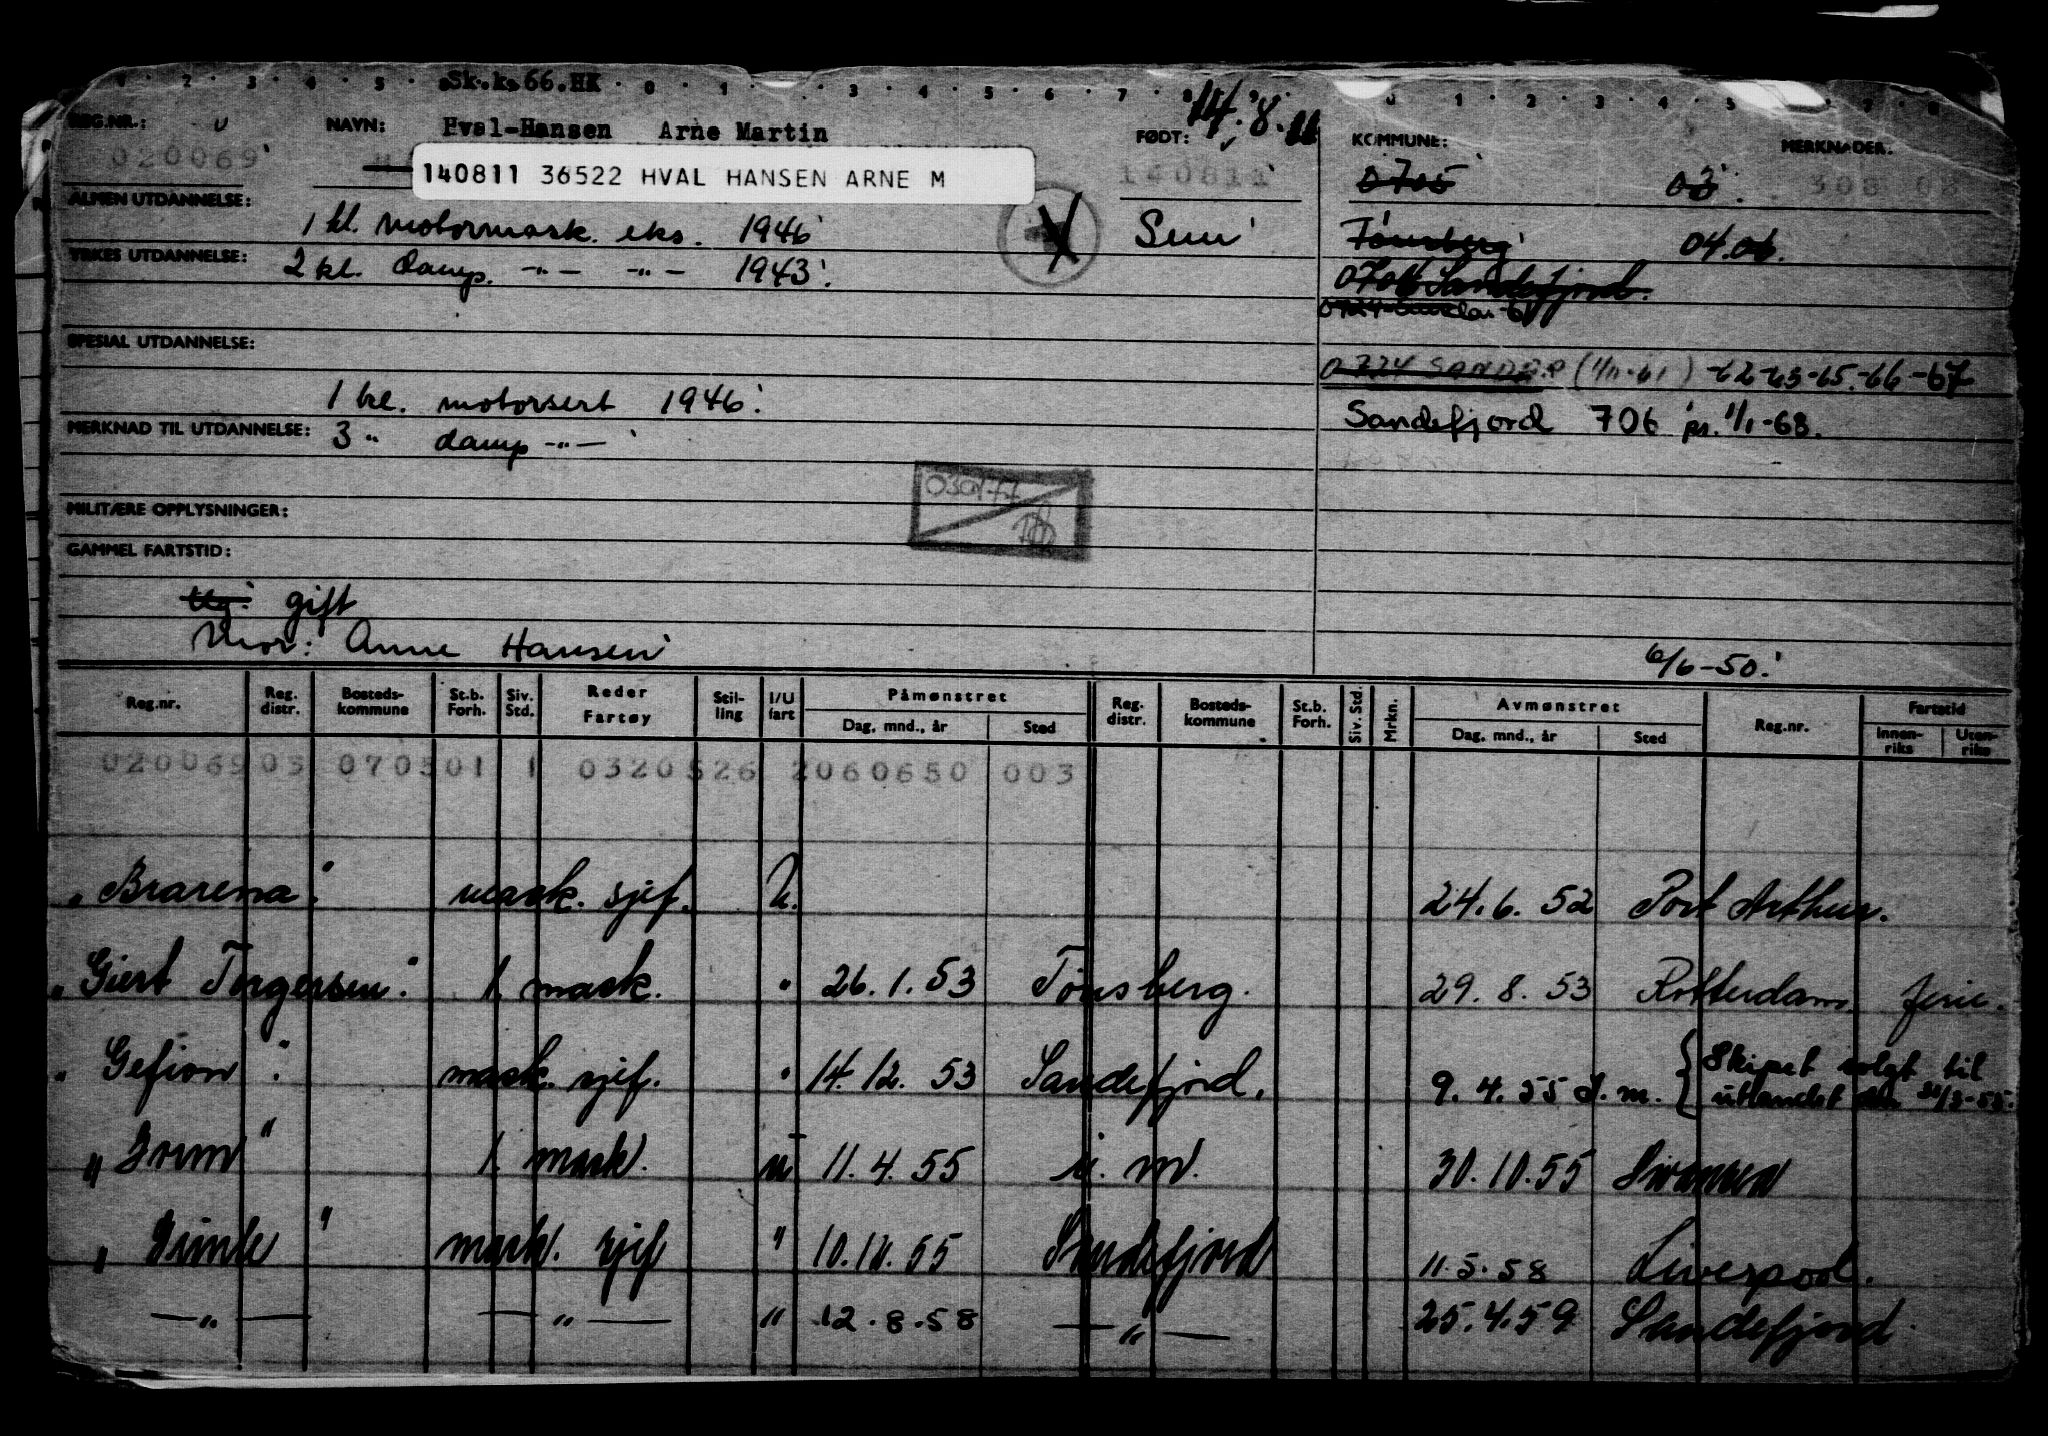 Sk.k.66.HK
REG.NR.: NAVN: Hval-Hansen Arne Martin FØDT: 14.8.11 KOMMUNE: MERKNADER.
020069 140811 36522 HVAL HANSEN ARNE M 140811 0705 03. 308 02
ALMEN UTDANNELSE: 1 kl. motormask. eks. 1946 Sem Tønsberg 04.06.
YRKES UTDANNELSE: 2 kl. damp. -"- -"- 1943. 0706 Sandefjord.
SPESIAL UTDANNELSE:
0724 SANDAR (1/11-61) -62-63-65-66-67
1 kl. motorsert 1946. Sandefjord 706 pr. 1/1-68.
MERKNAD TIL UTDANNELSE: 3 " damp -"-
MILITÆRE OPPLYSNINGER:
GAMMEL FARTSTID:
Ug. gift
Mor: Anne Hansen 6/6-50.
Reg.nr. Reg. distr. Bosteds-kommune St.b. Forh. Siv. Std. Reder Fartøy Stil-ling I/U fart Påmønstret Dag, mnd., år Sted Reg. distr. Bosteds-kommune St.b. Forh. Siv. Std. Mrkn. Avmønstret Dag, mnd., år Sted Reg.nr. Fartstid Innen-riks Uten-riks
020069 03 0705 01 1 0320526 2060650 003
"Brarena" mask. sjef. U. 24.6.52 Port Arthur.
"Giert Torgersen" 1. mask. " 26.1.53 Tønsberg. 29.8.53 Rotterdam. ferie.
"Gefion" mask. sjef. " 14.12.53 Sandefjord. 9.4.55 { Skipet solgt til
utlandet
1. mask. u 11.4.55 u. m. 30.10.55 Swansea
mask. sjef " 55 Sandefjord 11.5.58 Liverpool.
—"— —"— " 12.8.58 —"— 25.4.59 Sandefjord